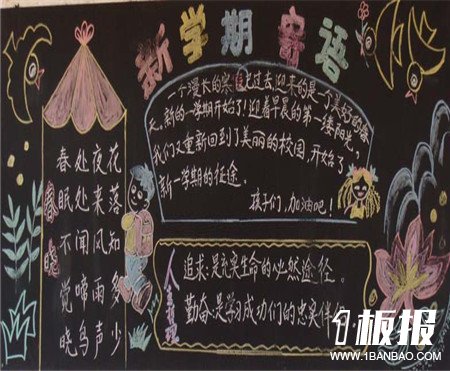 新学期寄语
一个漫长的寒假已过去,迎来的是一个美好的春
天。新的一学期开始了!迎着早晨的第一缕阳光,
我们又重新回到了美丽的校园,开始了
新一学期的征途。
孩子们,加油吧!
春晓
春眠不觉晓
处处闻啼鸟
夜来风雨声
花落知多少
人生
追求:是充实生命的必然途径。
勤奋:是学习成功们的忠实伴
1板报
WWW.1BANBAO.COM